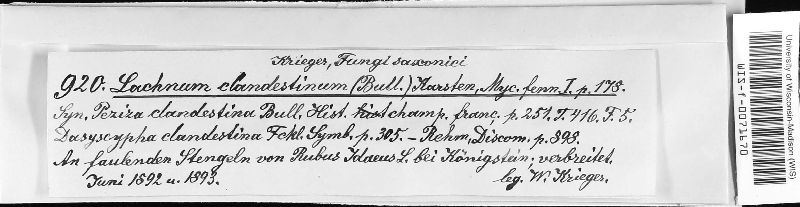 Krieger, Fungi saxonici
920. Lachnum clandestinum (Bull.) Karsten, Myc. fenn. I. p. 178.
Syn. Peziza clandestina Bull. Hist. champ. franc. p. 251. T. 416. F. 5.
Dasyscypha clandestina Fckl. Symb. p. 305. - Rehm, Discom. p. 898.
An faulenden Stengeln von Rubus Idaeus L. bei Königstein; verbreitet.
Juni 1892 u. 1893.
leg. W. Krieger.
University of Wisconsin-Madison (WIS)
WIS-f-0071670